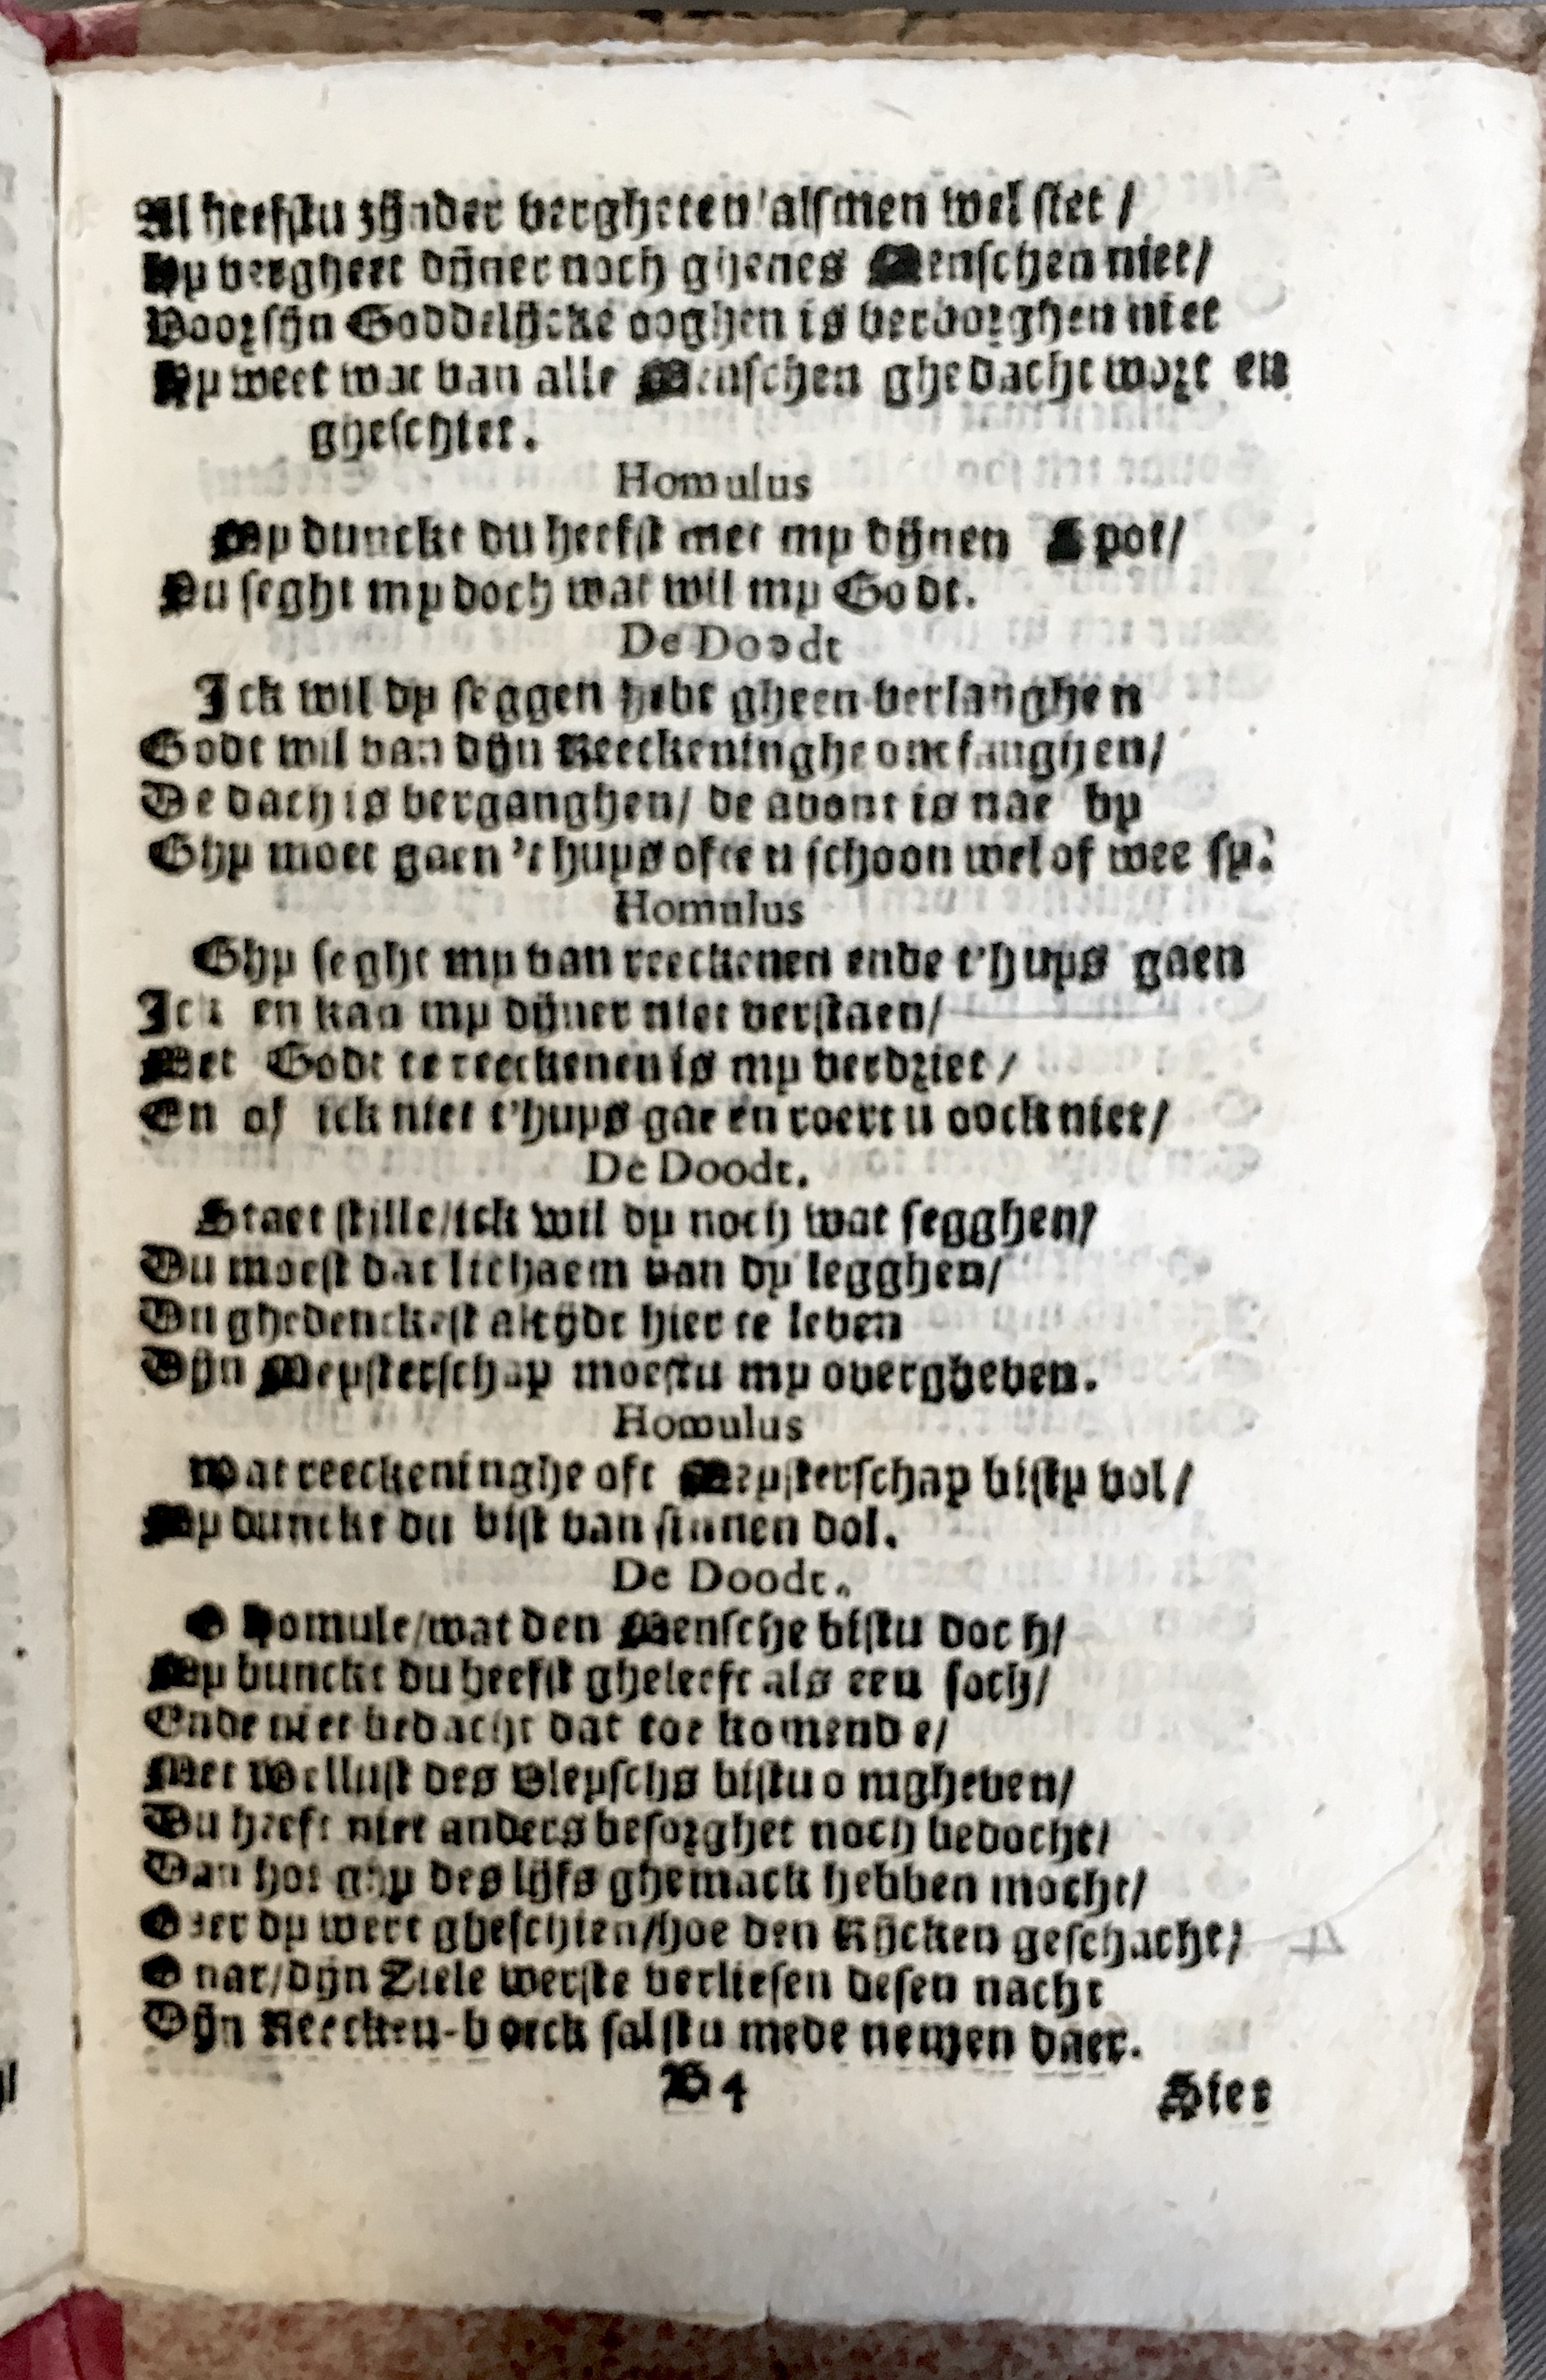 Al heefstu zijnder vergheten/ alsmen wel siet /
Hy vergheet dijner noch ghenes Menschen niet/
Voor sijn Goddelijcke ooghen is verborghen niet
Hy weet wat van alle Menschen ghedacht wort en
gheschiet.
Homulus
My dunckt du heefst met my dijnen Spot/
Nu seght my doch wat wil my Godt.
De Doodt
Ick wil dy seggen hebt gheen verlanghen
Godt wil van dijn Reeckeninghe ontfanghen/
De dach is verganghen/ de avont is nae by
Ghy moet gaen 't huys ofte u schoon wel of wee sy.
Homulus
Ghy seght my van reeckenen ende t'huys gaen
Ick en kan my dijner niet verstaen/
Met Godt te reeckenen is my verdriet /
En of ick niet t'huys gae en roert u oock niet/
De Doodt.
Staet stille/ick wil dy noch wat segghen/
Du moest dat lichaem van dy legghen/
Du ghedenckest altijdt hier te leven
Dijn Meysterschap moestu my overgheven.
Homulus
Wat reeckeninghe oft Meysterschap bisty vol/
My dunckt du bist van sinnen dol.
De Doodt.
O Homule/wat den Mensche bistu doch/
My dunckt du heefst gheleeft als een soch/
Ende niet bedacht dat toe komende/
Met Wellust des Vleyschs bistu omgheven/
Du heeft niet anders besorghet noch bedocht/
Dan hoe ghy des lijfs ghemack hebben mocht/
Over dy wert gheschien/hoe den Rijcken geschacht/
O nar/dijn Ziele werste verliesen desen nacht
Dijn Reecken-boeck salstu mede nemen daer.
B4 Hier